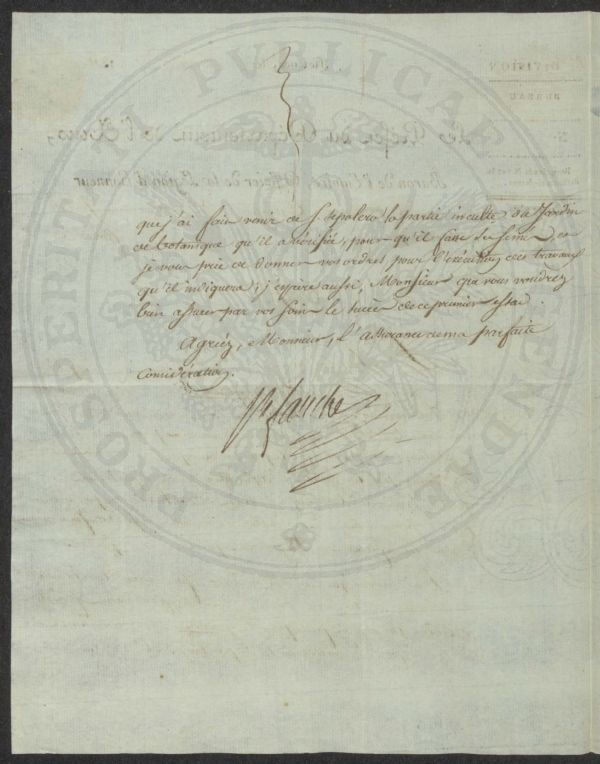 que j'ai fait venir de S. Sepolcro la partie inculte du Jardin
de botanique qu'il a vérifiée, pour qu'il fasse les semé et
je vous prie de donner vos ordres pour l'exécution des travaux
qu'il indiquera; j'espère aussi, Monsieur que vous voudrez
bien assurer par vos soins le succès de ce premier essai.
Agréez, Monsieur, l'assurance de ma parfaite
considération.
Fauchet
PROSPERITATI PUBLICAE AUGENDAE
DIVISION
BUREAU
N.
Le Préfet du Département de l'Arno,
Baron de l'Empire, Officier de la Légion d'Honneur